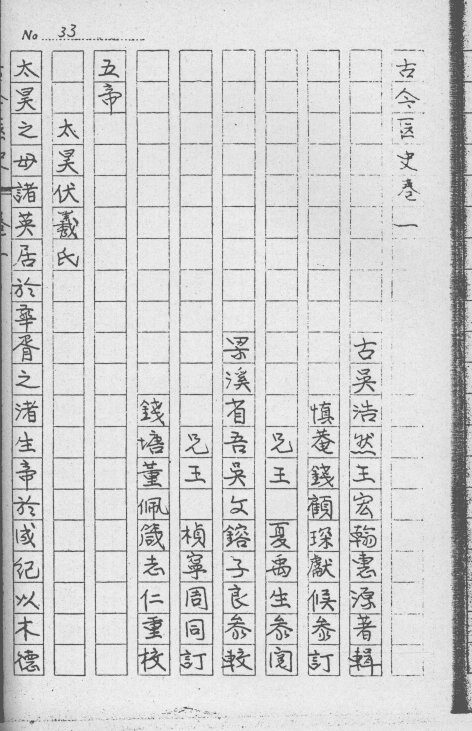 No 33
古今醫史卷一
古吳浩然王宏翰惠源著輯
慎菴錢顧琛獻候參訂
兄王 夏禹生參閱
梁溪省吾吳文鎔子良參較
兄王 楨寧周同訂
錢塘董佩箴志仁重校
五帝
太昊伏羲氏
太昊之母諸英居於華胥之渚生帝於成紀以木德